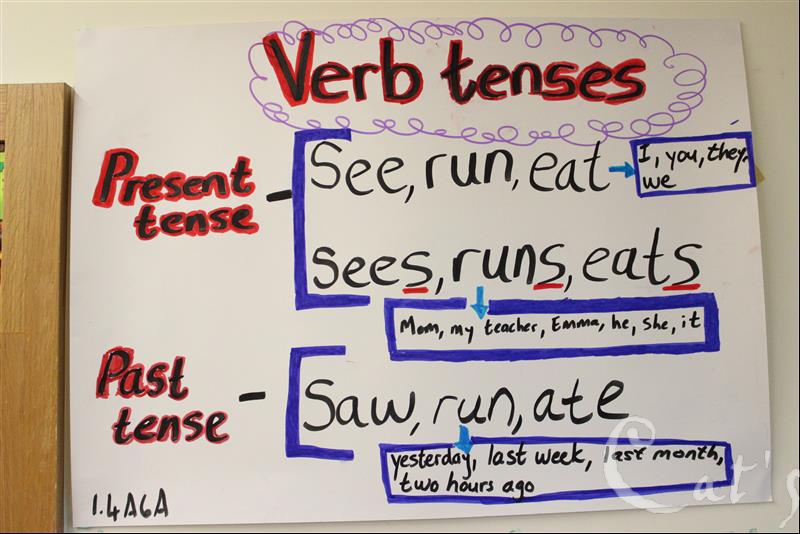 Verb tenses
Present
tense
-
See, run, eat
I, you, they,
we
sees, runs, eats
Mom, my teacher, Emma, he, she, it
Past
tense
-
Saw, run, ate
yesterday, last week, last month,
two hours ago
1.4A6A
Cat's